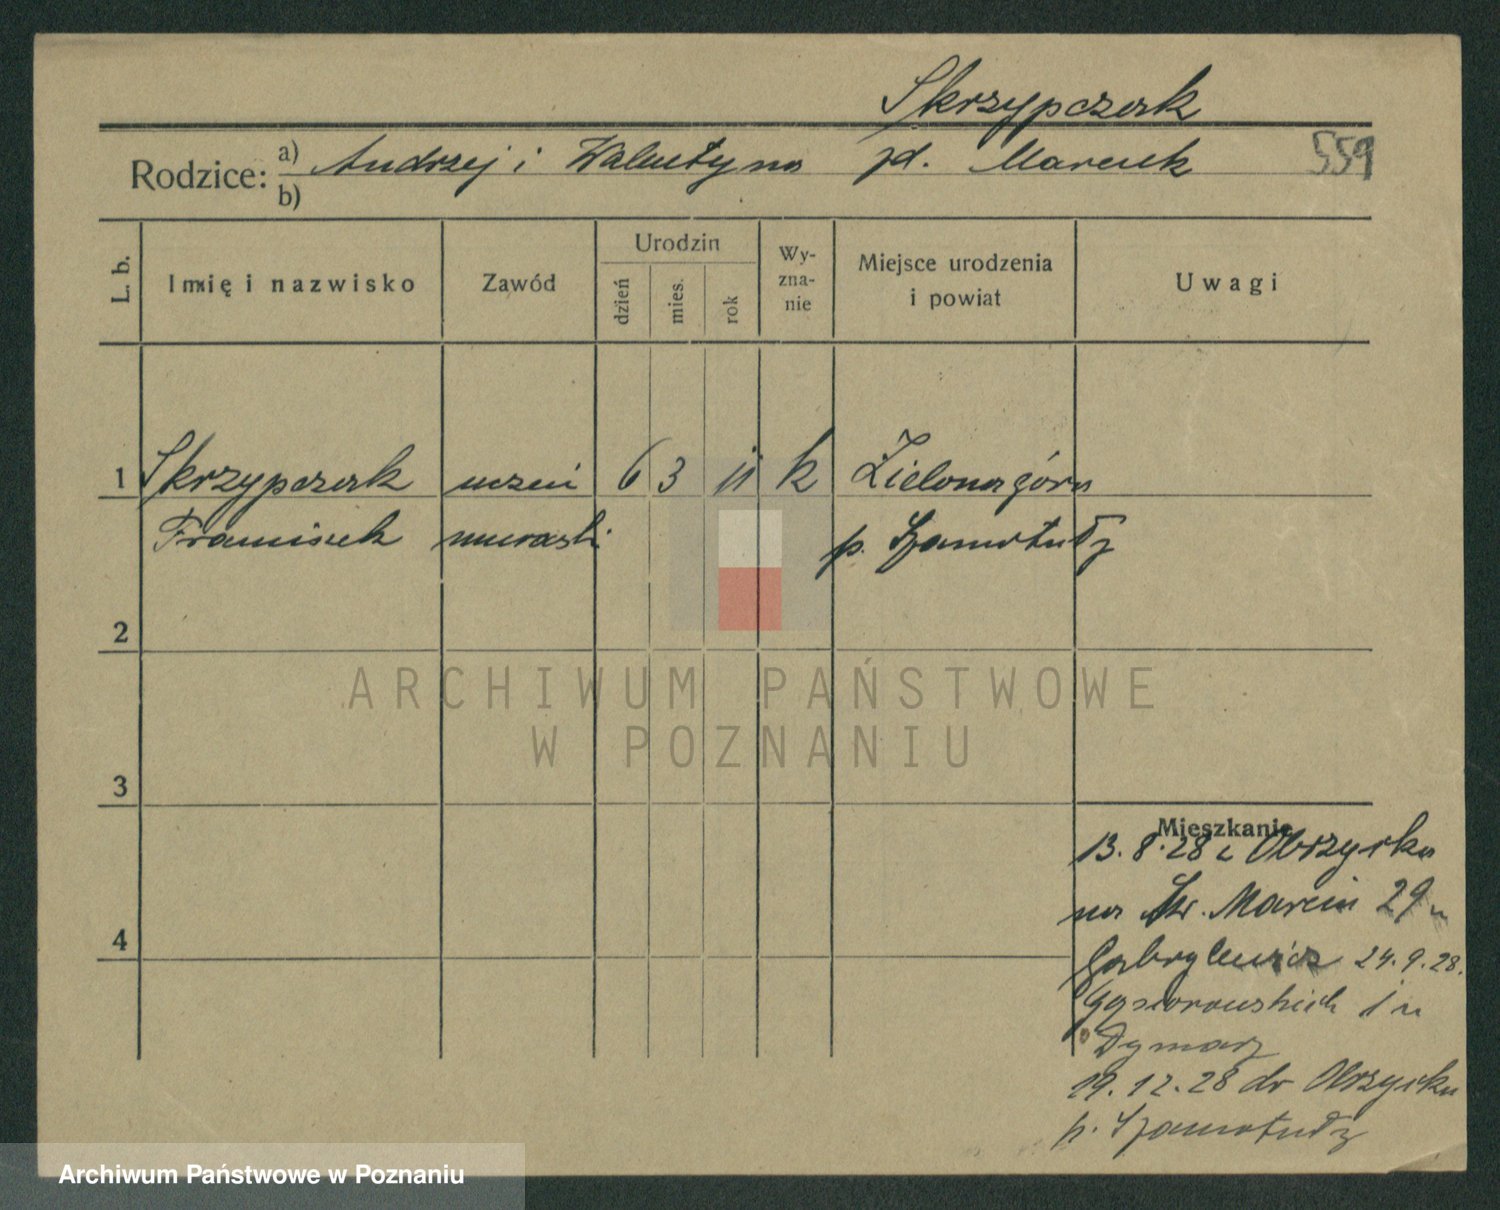 Skrzypczak
Rodzice: a) Andrzej i Walentyna zd. Marcuk 559
b)
L. b. Imię i nazwisko Zawód Urodzin dzień mies. rok Wyznanie Miejsce urodzenia i powiat Uwagi
1 Skrzypczak uczeń 6 3 11 k Zielonagóra
Franciszek murarski p. Szamotuły
2
ARCHIWUM PAŃSTWOWE
W POZNANIU
3
Mieszkanie
13.8.28 z Obrzycka
na Św. Marcin 29 u
4
Gabrylewicz 24.9.28.
Gąsiorowskich 1 u
Dymarz
19.12.28 do Obrzycka
p. Szamotuły
Archiwum Państwowe w Poznaniu